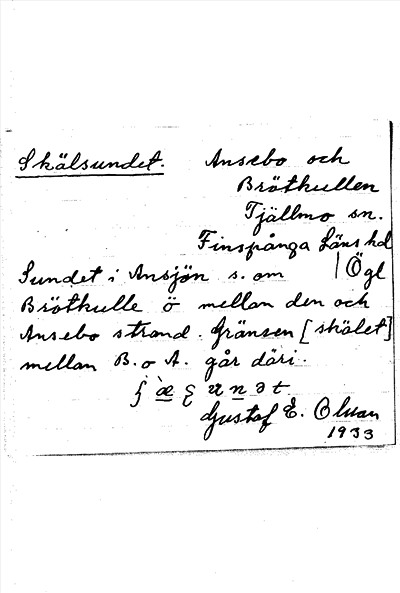 Skälsundet. Ansebo och
Brötkullen
Tjällmo sn.
Finspånga Läns hd
Sundet i Ansjön s. om | Ögl
Brötkulle ö mellan den och
Ansebo strand. Gränsen [skälet]
mellan B. o A. går däri.
Gustaf E. Olman
1933